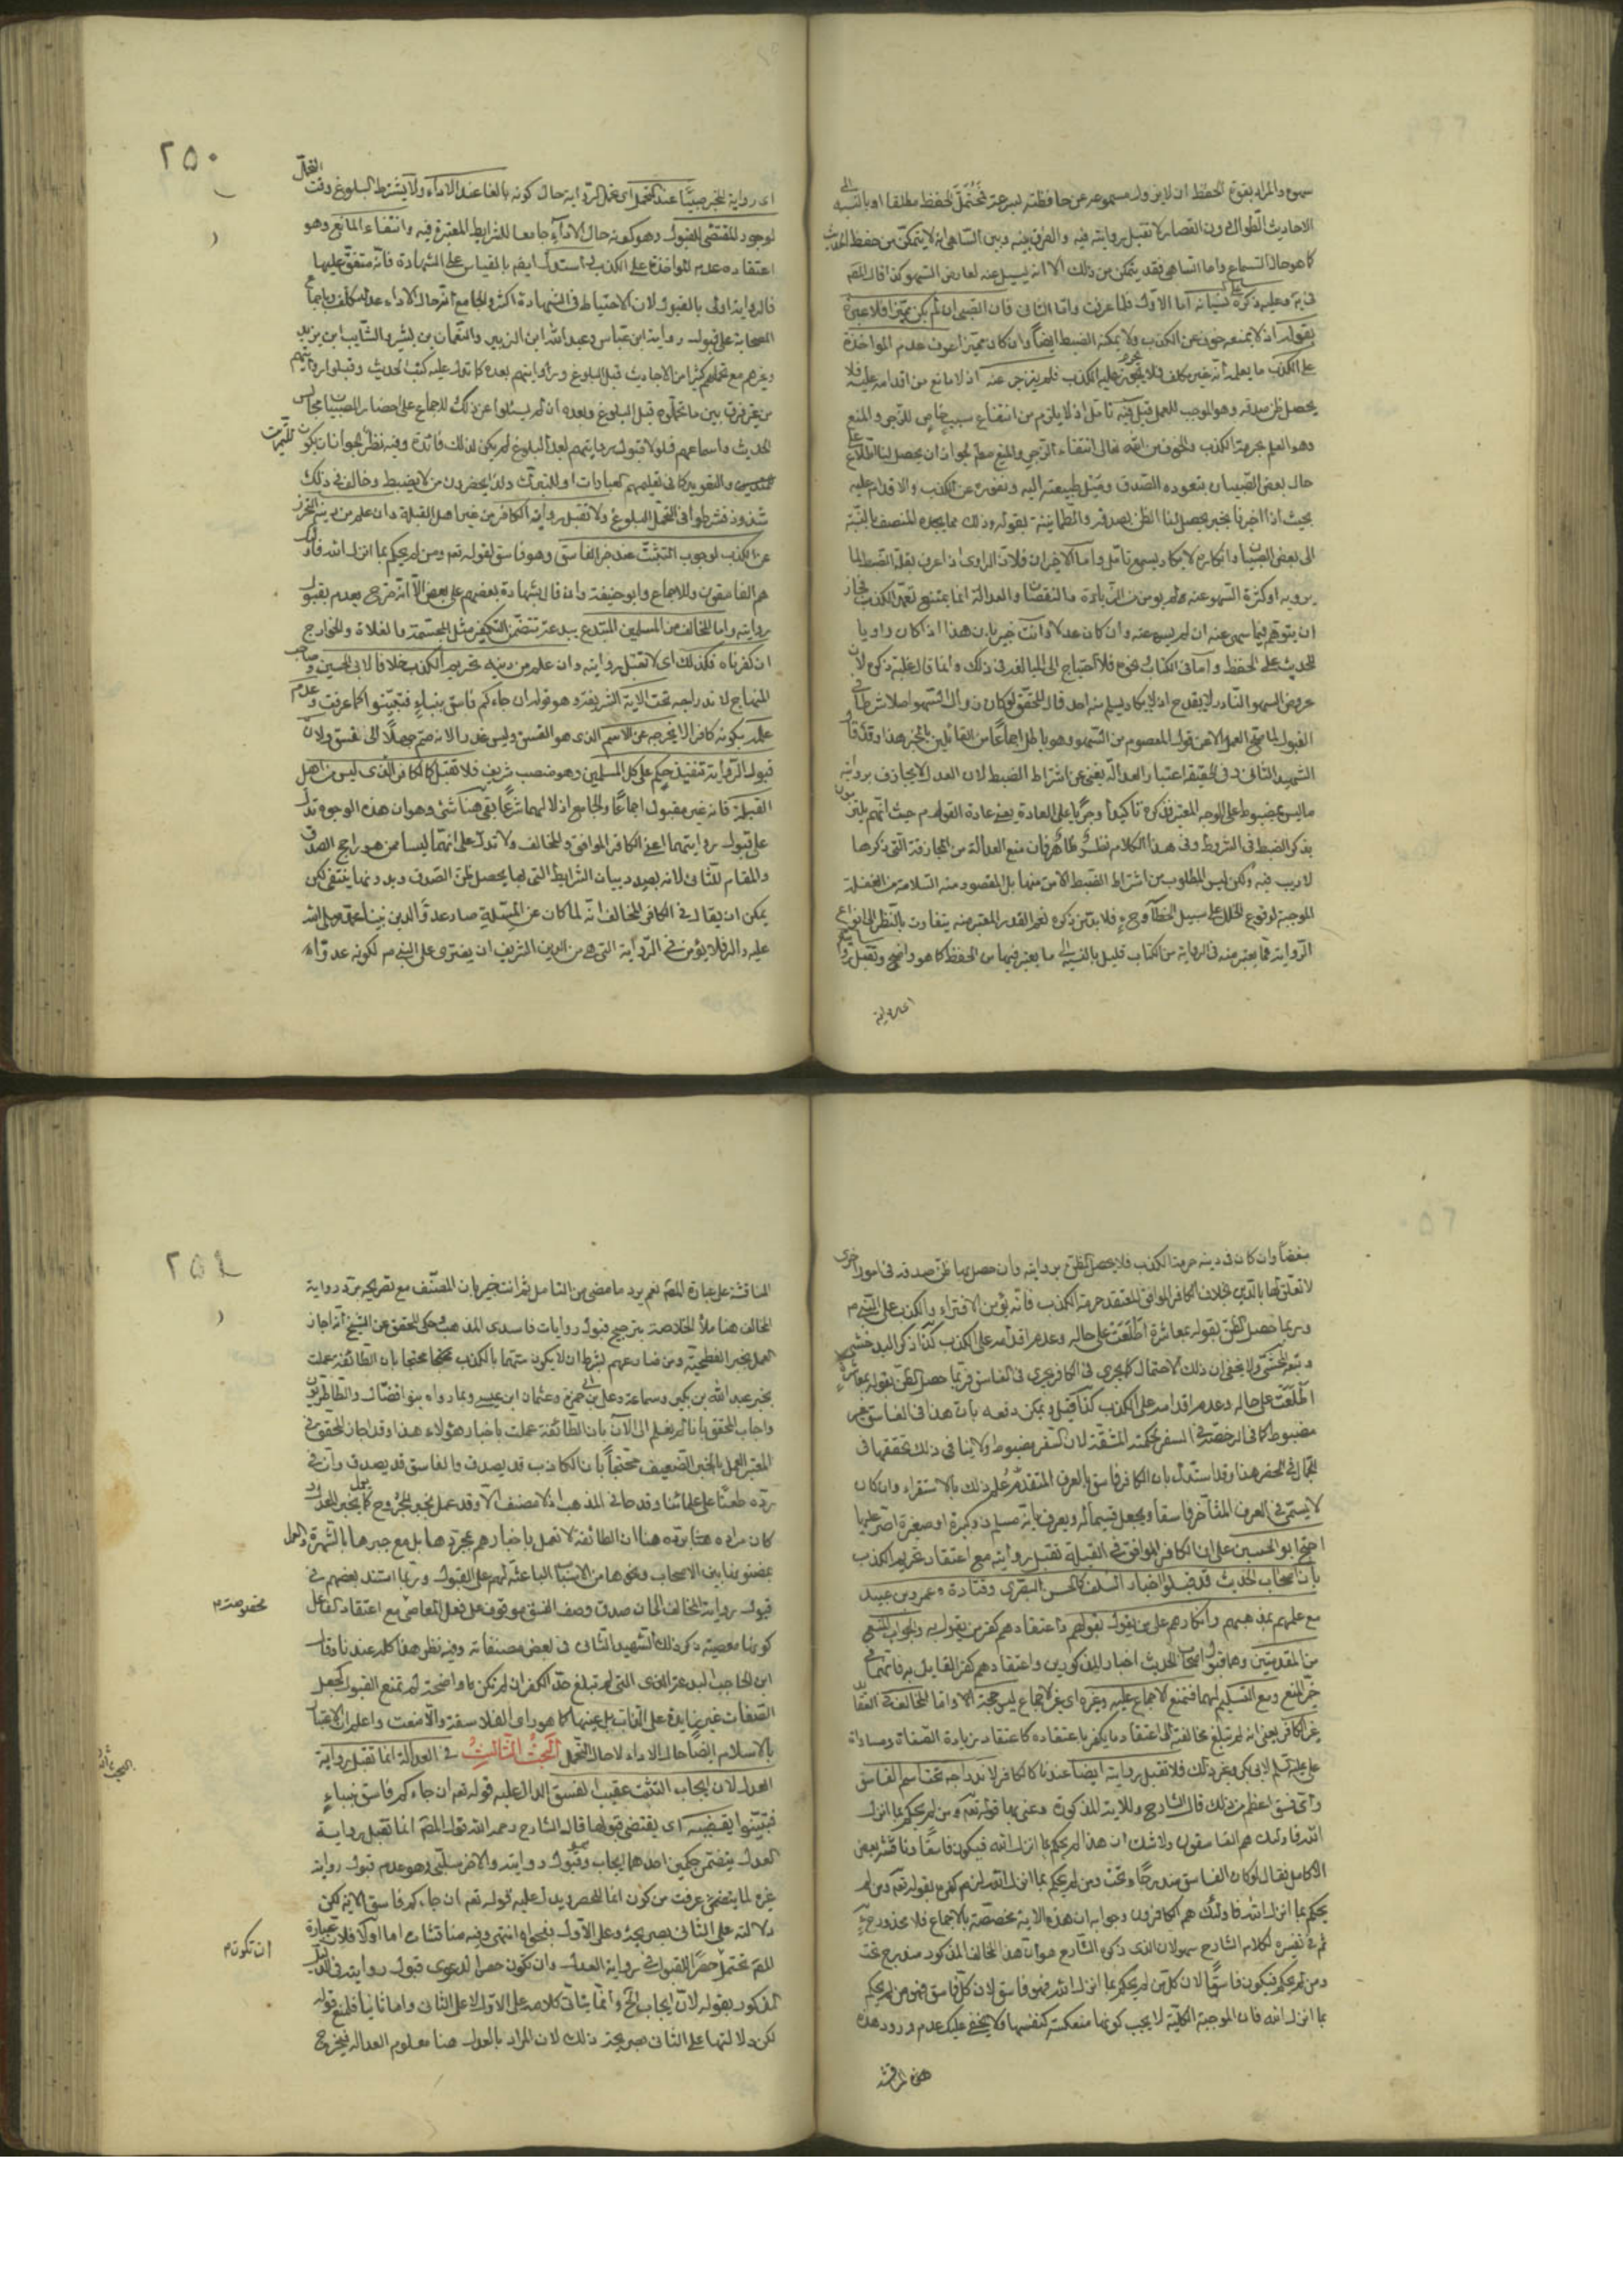 سهوع والمراد بقوة الحفظ ان لا يزول مسموعه عن حافظته بسرعة فتحمل الحفظ مطلقا او بالنسبة الى
الاحاديث الطوال دون القصار لا تقبل روايته فيه والفرق بينه وبين الساهي انه لا يتمكن من حفظ الحديث
كما هو حال السماع واما الساهي فقد يتمكن من ذلك الا انه يسيل عنه لعارض السهو كذا قال المصـ
في يه وعليه ذكره نسيانه اما الاول فلما عرفت واما الثاني فان الصبي ان لم يكن مميزا فلا عبرة
بقوله اذ لا يمنعه خوف عن الكذب ولا يمكنه الضبط ايضاً وان كان مميزا عرف عدم المواخذة
على الكذب ما يعلم انه غير مكلف فلا يحرم عليه الكذب فلم ينزجر عنه اذ لا مانع من اقدامه عليه فلا
يحصل ظن صدقه وهو الموجب للعمل قيل فيه تامل اذ لا يلزم من انتفاء سبب خاص للزجر والمنع
وهو العلم بحرمة الكذب والخوف من الله تعالى انتفاء الزجر والمنع مطلقا لجواز ان يحصل لنا اطلاع على
حال بعض الصبيان بتعوده الصدق وميل طبيعته اليه ونفوره عن الكذب والاقدام عليه
بحيث اذا اخبرنا بخبر يحصل لنا الظن بصدقه والطمانينة بقوله وذلك مما يجده المنصف بالنسبة
الى بعض الصبيان وانكاره لا يكاد يسمع تامل واما الاخيران فلان الراوي اذا عرف بقلة الضبط لما
يرويه او كثرة السهو عنه لم يومن من الزيادة والنقصان والعدالة انما يمتنع تعمد الكذب فجاز
ان يتوهم فيما سهى عنه ان لم يسه عنه وان كان عدلا وانت خبير بان هذا اذا كان راويا
للحديث على الحفظ واما في الكتاب فلا احتياج الى المبالغة في ذلك وانما قال غلبة ذكره لان
عروض السهو النادر لا يقدح اذ لا يكاد يسلم منه احد قال المحقق لو كان زوال السهو اصلا شرطا في
القبول لما صح العمل الا عن قول المعصوم من السهو وهو باطل اجماعاً من القائلين بالخبر هذا وقد قال
الشهيد الثاني وفي الحقيقة اعتبار العدالة يغني عن اشتراط الضبط لان العدل لا يجازف برواية
ما ليس بمضبوط على الوجه المعتبر فذكره تاكيداً وجريا على العادة يعنى عادة القوم حيث انهم يلتزمون
بذكر الضبط في الشروط وفي هذا الكلام نظر ظاهر فان منع العدالة من المجازفة التي ذكرها
لا ريب فيه ولكن ليس المطلوب من اشتراط الضبط الامن منها بل المقصود منه السلامة من الغفلة
الموجبة لوقوع الخلل على سبيل الخطأ وح فلا بد من ذكره نعم القدر المعتبر منه يتفاوت بالنظر الى انواع
الرواية فما يعتبر منه في الرواية من الكتاب قليل بالنسبة الى ما يعتبر فيها من الحفظ كما هو واضح وتقبل
اى رواية
٢٥٠
اى رواية المخبر صبيّا عند التحمل اى تحمل الرواية حال كونه بالغا عند الاداء ولا يشترط البلوغ وقت التحمل
لوجود المقتضى للقبول وهو كونه حال الاداء جامعا للشرايط المعتبرة فيه وانتفاء المانع وهو
اعتقاده عدم المواخذة على الكذب واستدل ايضا بالقياس على الشهادة فانه متفق عليها
فالرواية اولى بالقبول لان الاحتياط في الشهادة اكثر والجامع انه حال الاداء عدل مكلف وباجماع
الصحابة على قبول رواية ابن عباس وعبد الله ابن الزبير والنعمان بن بشير والسايب ابن يزيد
وغيرهم مع تحملهم كثيرا من الاحاديث قبل البلوغ وروايتهم بعده كما تدل عليه كتب الحديث وقبلوا روايتهم
من غير فرق بين ما تحملوه قبل البلوغ وبعده ان لم يسئلوا عن ذلك وللاجماع على احضار الصبيان مجالس
الحديث واسماعهم فلولا قبول روايتهم بعد البلوغ لم يكن لذلك فائدة وفيه نظر لجواز ان يكون للتمرن
والتعويد كما في تعليمهم العبادات او للتبرك ولذا يحضرون من لا يضبط وخالف في ذلك
شذوذ فشرطوا في التحمل البلوغ ولا تقبل رواية الكافر من غير اهل القبلة وان علم من دينه التحرز
عن الكذب لوجوب التثبت عند خبر الفاسق وهو فاسق لقوله تعه ومن لم يحكم بما انزل الله فاولئك
هم الفاسقون وللاجماع وابو حنيفة وان قال بشهادة بعضهم على بعض الا انه صرح بعدم بقبول
روايته واما المخالف من المسلمين المبتدع ببدعة تتضمن التكفير مثل المجسمة والغلاة والخوارج
ان كفرناه فكذلك اى لا تقبل روايته وان علم من دينه تحريم الكذب خلافا لابى الحسين وصاحب
المنهاج لاندراجه تحت الاية الشريفة وهو قوله ان جاءكم فاسق بنباء فتبينوا كما عرفت وعدم
علمه بكونه كافرا لا يخرجه عن الاسم الذى هو الفسق وليس عذرا لانه ضم جهلا الى فسق ولان
قبول الرواية تنفيذ حكم على كل المسلمين وهو منصب شريف فلا تقبل كالكافر الذى ليس من اهل
القبلة فانه غير مقبول اجماعا والجامع اذلالهما شرعا بقي هنا شئ وهو ان هذه الوجوه تدل
على قبول روايتهما اعنى الكافر الموافق والمخالف ولا تدل على انهما ليسا ممن هو راجح الصدق
والمقام للثانى لانه بصدد بيان الشرايط التى لها يحصل ظن الصدق وبدونها ينتفى لكن
يمكن ان يقال في الكافر المخالف انه لما كان عن المسئلة صار عدوّ الدين نبينا محمد صلى الله
عليه واله فلا يؤمن في الرواية التى هى من الدين الشريف ان يفترى على النبى ص لكونه عدوّا له
بغضاً وان كان في دينه حرمة الكذب فلا يحصل الظن بروايته وان حصل بها ظن صدقه في امور اخرى
لا تعلق لها بالدين بخلاف الكافر الموافق المعتقد حرمة الكذب فانه يؤمن الافتراء والكذب على النبى ص
وربما حصل الظن بقوله بمعاشرة اطلعت على حاله وعدم اقدامه على الكذب كذا ذكر السيد
ولا يخفى ان ذلك الاحتمال كما يجرى في الكافر يجرى في الفاسق فربما حصل الظن بقوله بمعاشرة
اطلعت على حاله وعدم اقدامه على الكذب كذا قيل ويمكن دفعه بان هذا في الفاسق غير
مضبوط كما في الرخصة في السفر لحكمة المشقة لان السفر مضبوط ولا ينافى ذلك تحققها في
الحضر هذا وقد استدل بان الكافر فاسق بالعرف المتقدم علم ذلك بالاستقراء وان كان
لا يسمى في العرف المتأخر فاسقا ويجعل قسيما له ويعرف بانه مسلم ذو كبيرة او صغيرة اصر عليها
احتج ابو الحسين على ان الكافر الموافق في القبلة تقبل روايته مع اعتقاد تحريم الكذب
بان اصحاب الحديث قد قبلوا اخبار السلف كالحسن البصرى وقتادة وعمرو بن عبيد
مع علمهم بمذهبهم وانكارهم على من يقول بقولهم واعتقادهم كفر من يقول به والجواب المنع
من المقدمتين وهما قبول اصحاب الحديث اخبار المذكورين واعتقادهم كفر القايل به فانهما في
حيز المنع ومع التسليم لهما فنمنع الاجماع عليه وغيره اى غير الاجماع ليس حجة واما المخالف
غير الكافر يعنى انه لم تبلغ مخالفته الى اعتقاد ما يكفر باعتقاده كاعتقاد زيادة الصفات ومساواة
على عليه السلام لابى بكر وغير ذلك فلا تقبل روايته ايضا عندنا كالكافر لاندراجه تحت اسم الفاسق
واى فسق اعظم من ذلك قال الشارح وللاية المذكورة وعنى بها قوله تعه ومن لم يحكم بما انزل
الله فاولئك هم الفاسقون ولا شك ان هذا لم يحكم بما انزل الله فيكون فاسقا وناقشه بعض
الاكامل فقال لو كان الفاسق مندرجا تحت ومن لم يحكم بما انزل الله لزم كفره بقوله تعه ومن لم
يحكم بما انزل الله فاولئك هم الكافرون وجوابه ان هذه الاية مخصصة بالاجماع فلا محذور ح
ثم في تفسيره لكلام الشارح سهو لان الذى ذكره الشارح هو ان هذا المخالف المذكور مندرج تحت
ومن لم يحكم فيكون فاسقا لان كل من لم يحكم بما انزل الله فهو فاسق لا ان كل فاسق فهو من لم يحكم
بما انزل الله فان الموجبة الكلية لا يجب كونها منعكسة كنفسها ولا يخفى عليك عدم ورود هذه
هذه المناقشة
٢٥١
المناقشة على عبارة المصـ نعم يرد ما مضى من التامل ثم انت خبير بان المصنف مع تصريحه برد رواية
المخالف هنا ملأ الخلاصة بترجيح قبول روايات فاسدى المذهب وحكى المحقق عن الشيخ انه اجاز
العمل بخبر الفطحية ومن ضارعهم بشرط ان لا يكون متهما بالكذب محتجا بان الطائفة عملت
بخبر عبد الله بن بكير وسماعة وعلى بن ابى حمزة وعثمان ابن عيسى وبما رواه بنو افضال والطاطريون
واجاب المحقق بانا لم نعلم الى الان بان الطائفة عملت باخبار هؤلاء هذا وقد اجاز المحقق في
المعتبر العمل بالخبر الضعيف محتجا بان الكاذب قد يصدق والفاسق قد يصدق وان في
رده طعنا على علمائنا وقدحا في المذهب اذ لا مصنف الا وقد عمل بخبر المجروح كما يعمل بخبر العدل
كان مراده هنا ان الطائفة لا تعمل باخبارهم بمجردها بل مع جبرها بالشهرة والعمل
بمضمونها بين الاصحاب ونحوها من الاسباب الباعثة لهم على القبول وربما استند بعضهم في
قبول رواية المخالف الى ان صدق وصف الفسق موقوف على فعل المعاصى مع اعتقاد الفاعل
كونها معصية ذكر ذلك الشهيد الثانى في بعض مصنفاته وفيه نظر هذا كله عندنا وقال
ابن الحاجب البدعة التى لم تبلغ حد الكفر ان لم تكن واضحة لم تمنع القبول كجعل
الصفات غير زايدة على الذات بل عينها كما هو راى الفلاسفة والا منعت واعلم ان الاعتبار
بالاسلام ايضاً حال الاداء لا حال التحمل البحث الثالث في العدالة انما تقبل رواية
العدل لان ايجاب التثبت عقيب الفسق الدال عليه قوله تعه ان جاءكم فاسق بنباء
فتبينوا يقتضيه اى يقتضى قبولها قال الشارح رحمه الله قول المصـ انما تقبل رواية
العدل يتضمن حكمين احدهما ايجاب وهو قبول روايته والاخر سلبى وهو عدم قبول رواية
غيره لما عرفت من كون انما للحصر ويدل عليه قوله تعه ان جاءكم فاسق الاية لكن
دلالته على الثانى بصريحه وعلى الاول بفحواه انتهى وفيه مناقشات اما اولا فلان عبارة
المصـ تحتمل حصر القبول في رواية العدل وان تكون حصرا لدعوى قبول روايته في الدليل
المذكور بقوله لان ايجاب الخ وانما يتأتى كلامه على الاول لا على الثانى واما ثانيا فلمنع قوله
لكن دلالتها على الثانى بصريحه وذلك لان المراد بالعدل هنا معلوم العدالة فيخرج